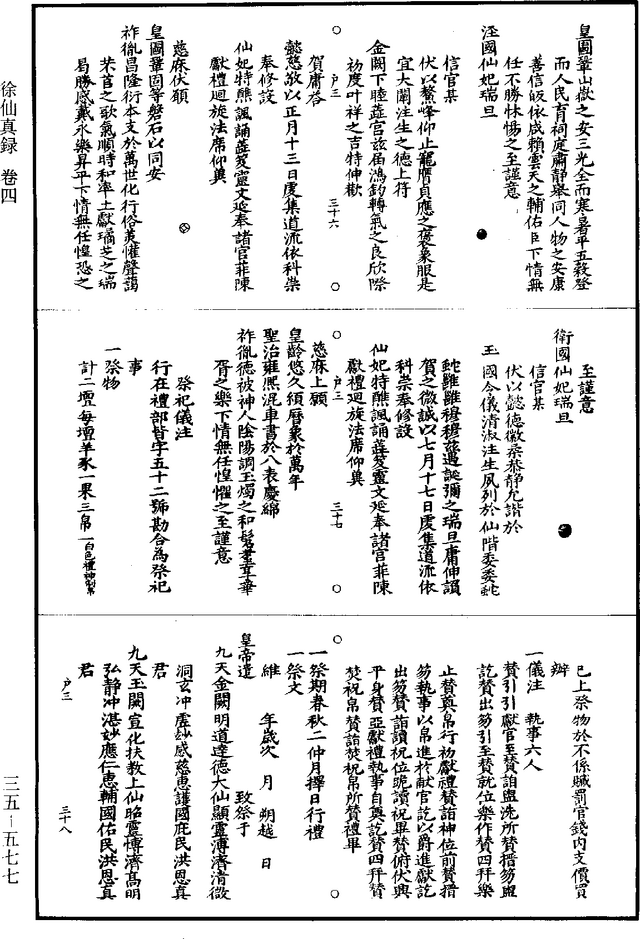 徐仙真錄 卷四
皇圖鞏山嶽之安三光全而寒暑平五穀登
而人民育祠庭肅靜舉同人物之安康
善信皈依咸賴雲天之輔佑臣下情無
任不勝怵惕之至謹意
涇國仙妃瑞旦
信官某
伏以鰲峰仰止龍膺貞應之褒象服是
宜大闡注生之德上符
金闕下睦蕋宮茲屆鴻鈞轉氣之良欣際
初度叶祥之吉特伸歡
户三
三十六
賀庸荅
懿慈敬以正月十三日虔集道流依科崇
奉修設
仙妃特醮諷誦蕋笈靈文延奉諸官菲陳
獻禮迴旋法席仰冀
慈庥伏願
皇圖鞏固等磐石以同安
祚胤昌隆衍本支於萬世化行俗美懽聲藹
朱𦭘之歌氣順時和率土獻璚芝之瑞
曷勝感戴永樂昇平下情無任惶恐之
至謹意
衛國仙妃瑞旦
信官某
伏以懿德徽柔恭靜允諧於
玉國令儀清淑注生夙列於仙階委委蛇
蛇雝雝穆穆茲遇誕彌之瑞旦庸伸頌
賀之微誠以七月十七日虔集道流依
科崇奉修設
仙妃特醮諷誦蕋笈靈文延奉諸官菲陳
獻禮迴旋法席仰冀
户三
三十七
慈庥上願
皇齡悠久須曆象於萬年
聖治雍熙混車書於八表慶綿
祚胤德被神人陰陽調玉燭之和髫耋享華
胥之樂下情無任惶懼之至謹意
祭祀儀注
行在禮部皆字五十二號勘合為祭祀
事
一祭物
計二壇每壇羊豕一果三帛一白色禮神制帛
已上祭物於不係贓罰官錢內支價買
辦
一儀注 執事六人
贊引引獻官至贊詣盥洗所贊搢笏盥
訖贊出笏引至贊就位樂作贊四拜樂
止贊奠帛行初獻禮贊詣神位前贊搢
笏執事以帛進於獻官訖以爵進獻訖
出笏贊詣讀祝位跪讀祝畢贊俯伏興
平身贊亞獻禮執事自奠訖贊四拜贊
焚祝帛贊詣焚祝帛所贊禮畢
一祭期春秋二仲月擇日行禮
一祭文
維 年歲次 月 朔越 日
皇帝遣 致祭于
九天金闕明道達德大仙顯靈溥濟清微
洞玄冲虛妙感慈惠護國庇民洪恩真
君
九天玉闕宣化扶教上仙昭靈博濟高明
弘靜冲湛妙應仁惠輔國佑民洪恩真
君
户三
三十八
三五－五七七